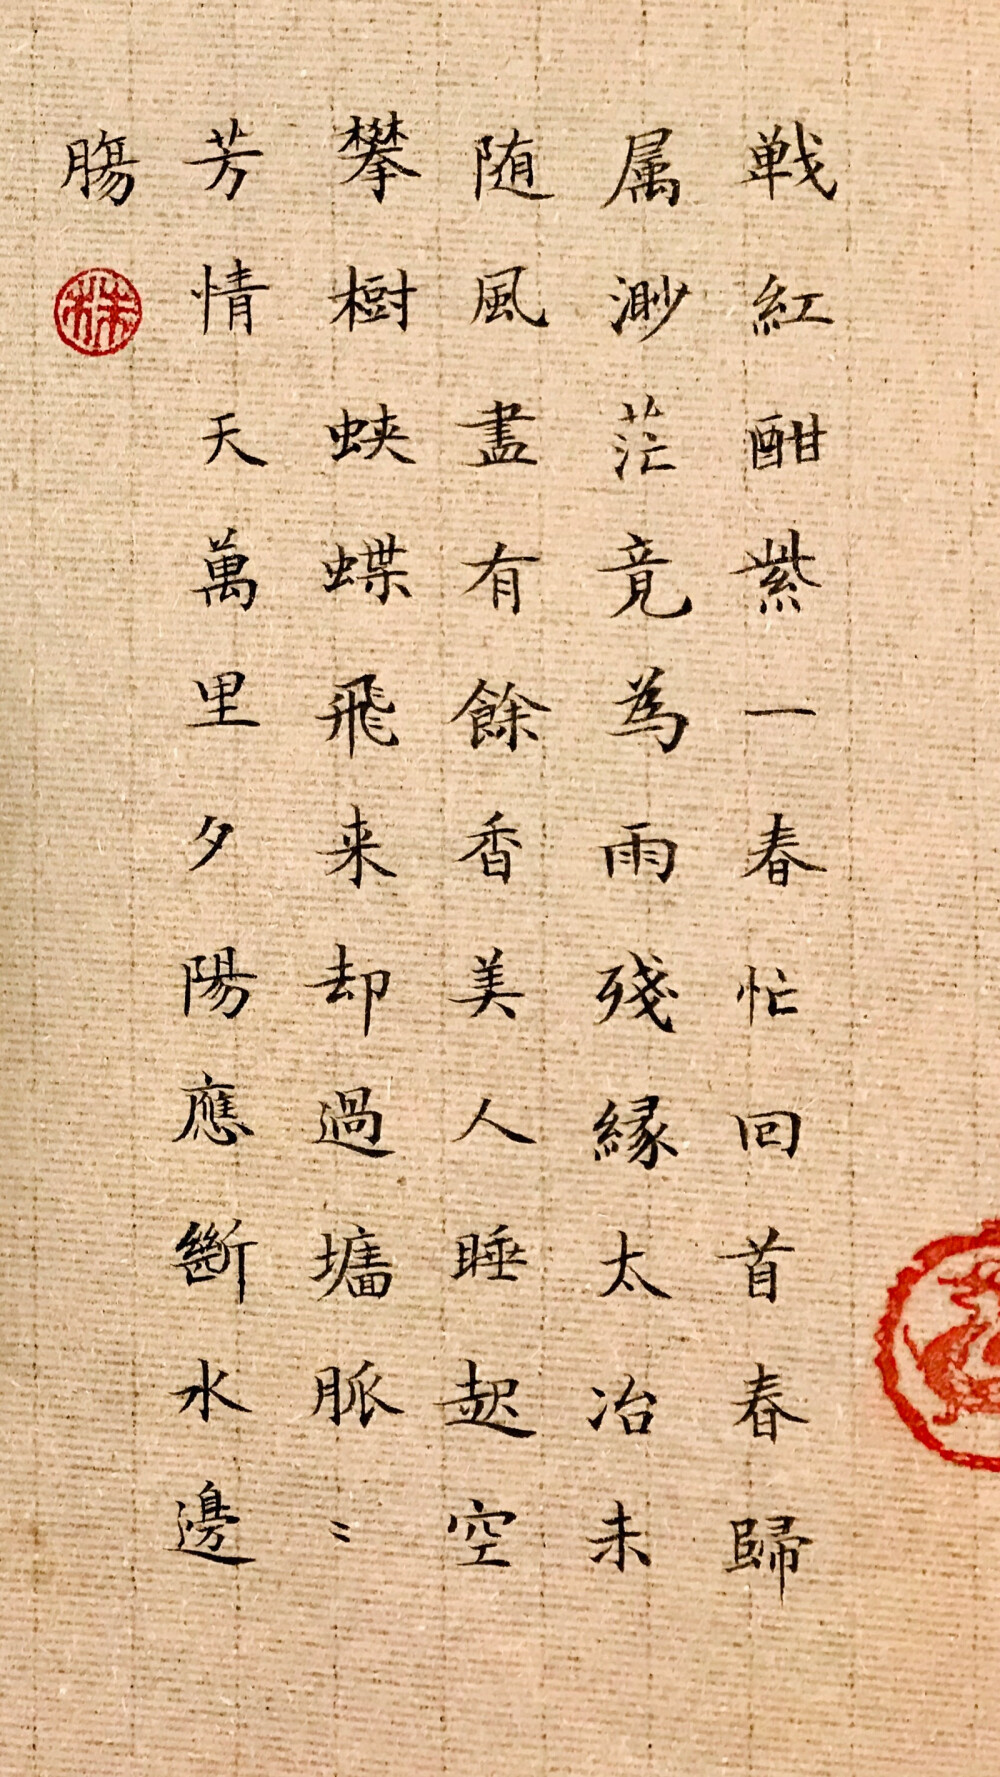 戦紅酣紫一春忙回首春歸
属渺茫竟為雨殘縁太冶未
随風盡有餘香美人睡起空
攀樹蛺蝶飛来却過墻脈〻
芳情天萬里夕陽應斷水邊
腸